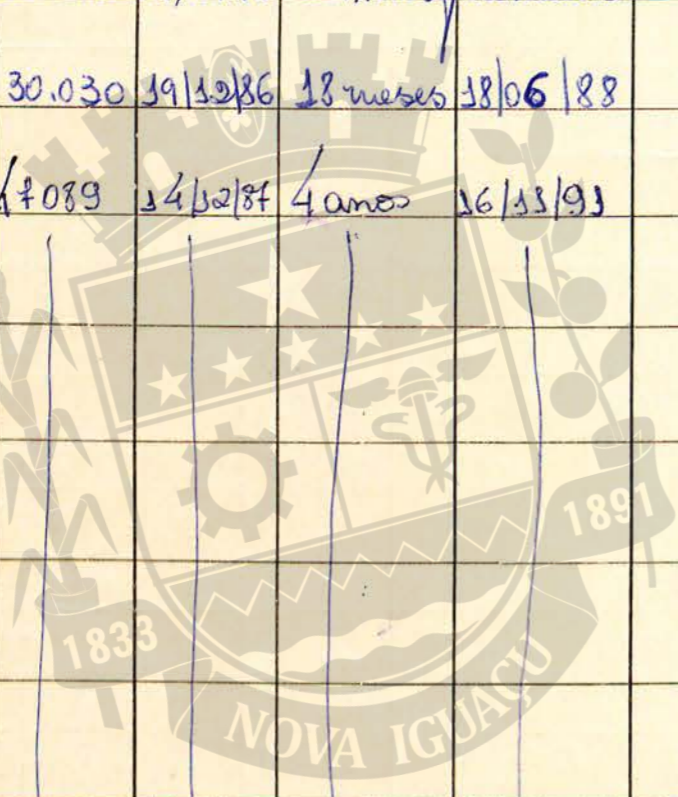 30.030 19/12/86 18 meses 18/06/88
14/12/87 4 anos 16/11/91
1891
1833
NOVA IGUAÇU